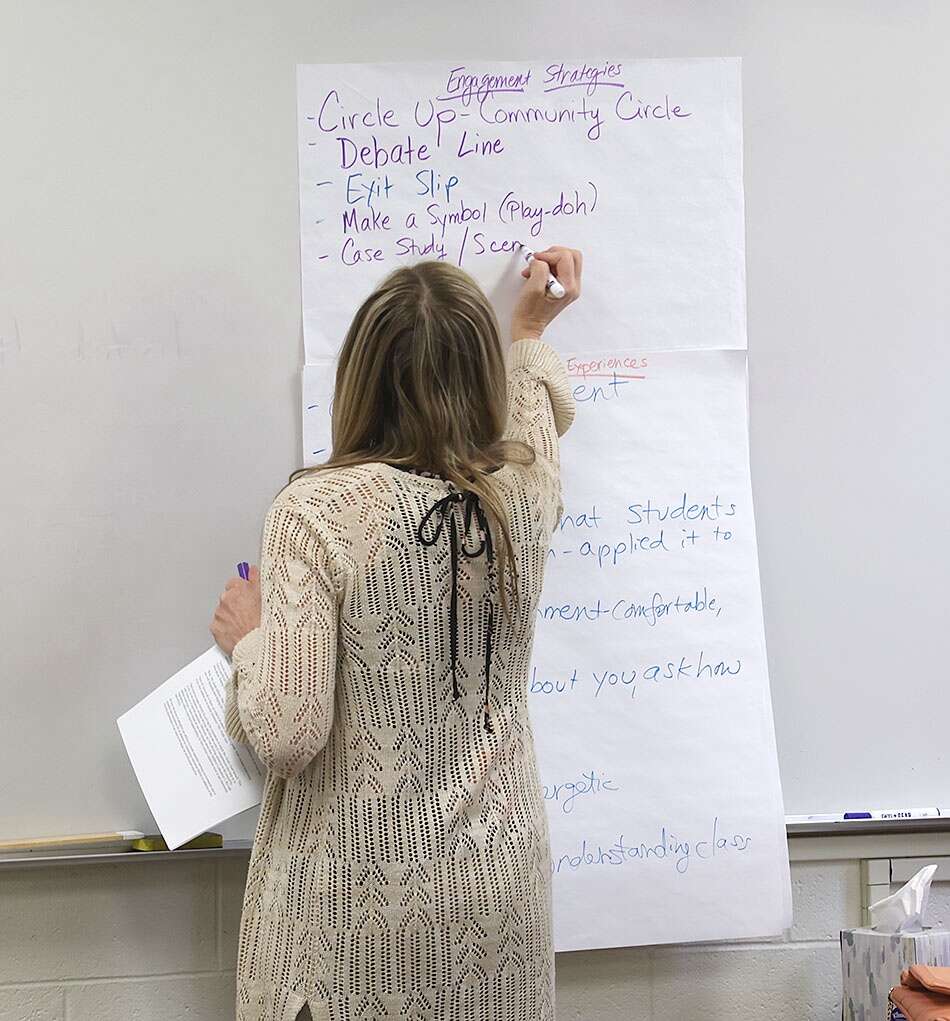 Engagement Strategies
-Circle Up-Community Circle
- Debate Line
- Exit Slip
- Make a Symbol (Play-doh)
- Case Study / Scen
Experiences
ent
hat students
n-applied it to
nment-comfortable,
bout you, ask how
ergetic
understanding class
EXPO